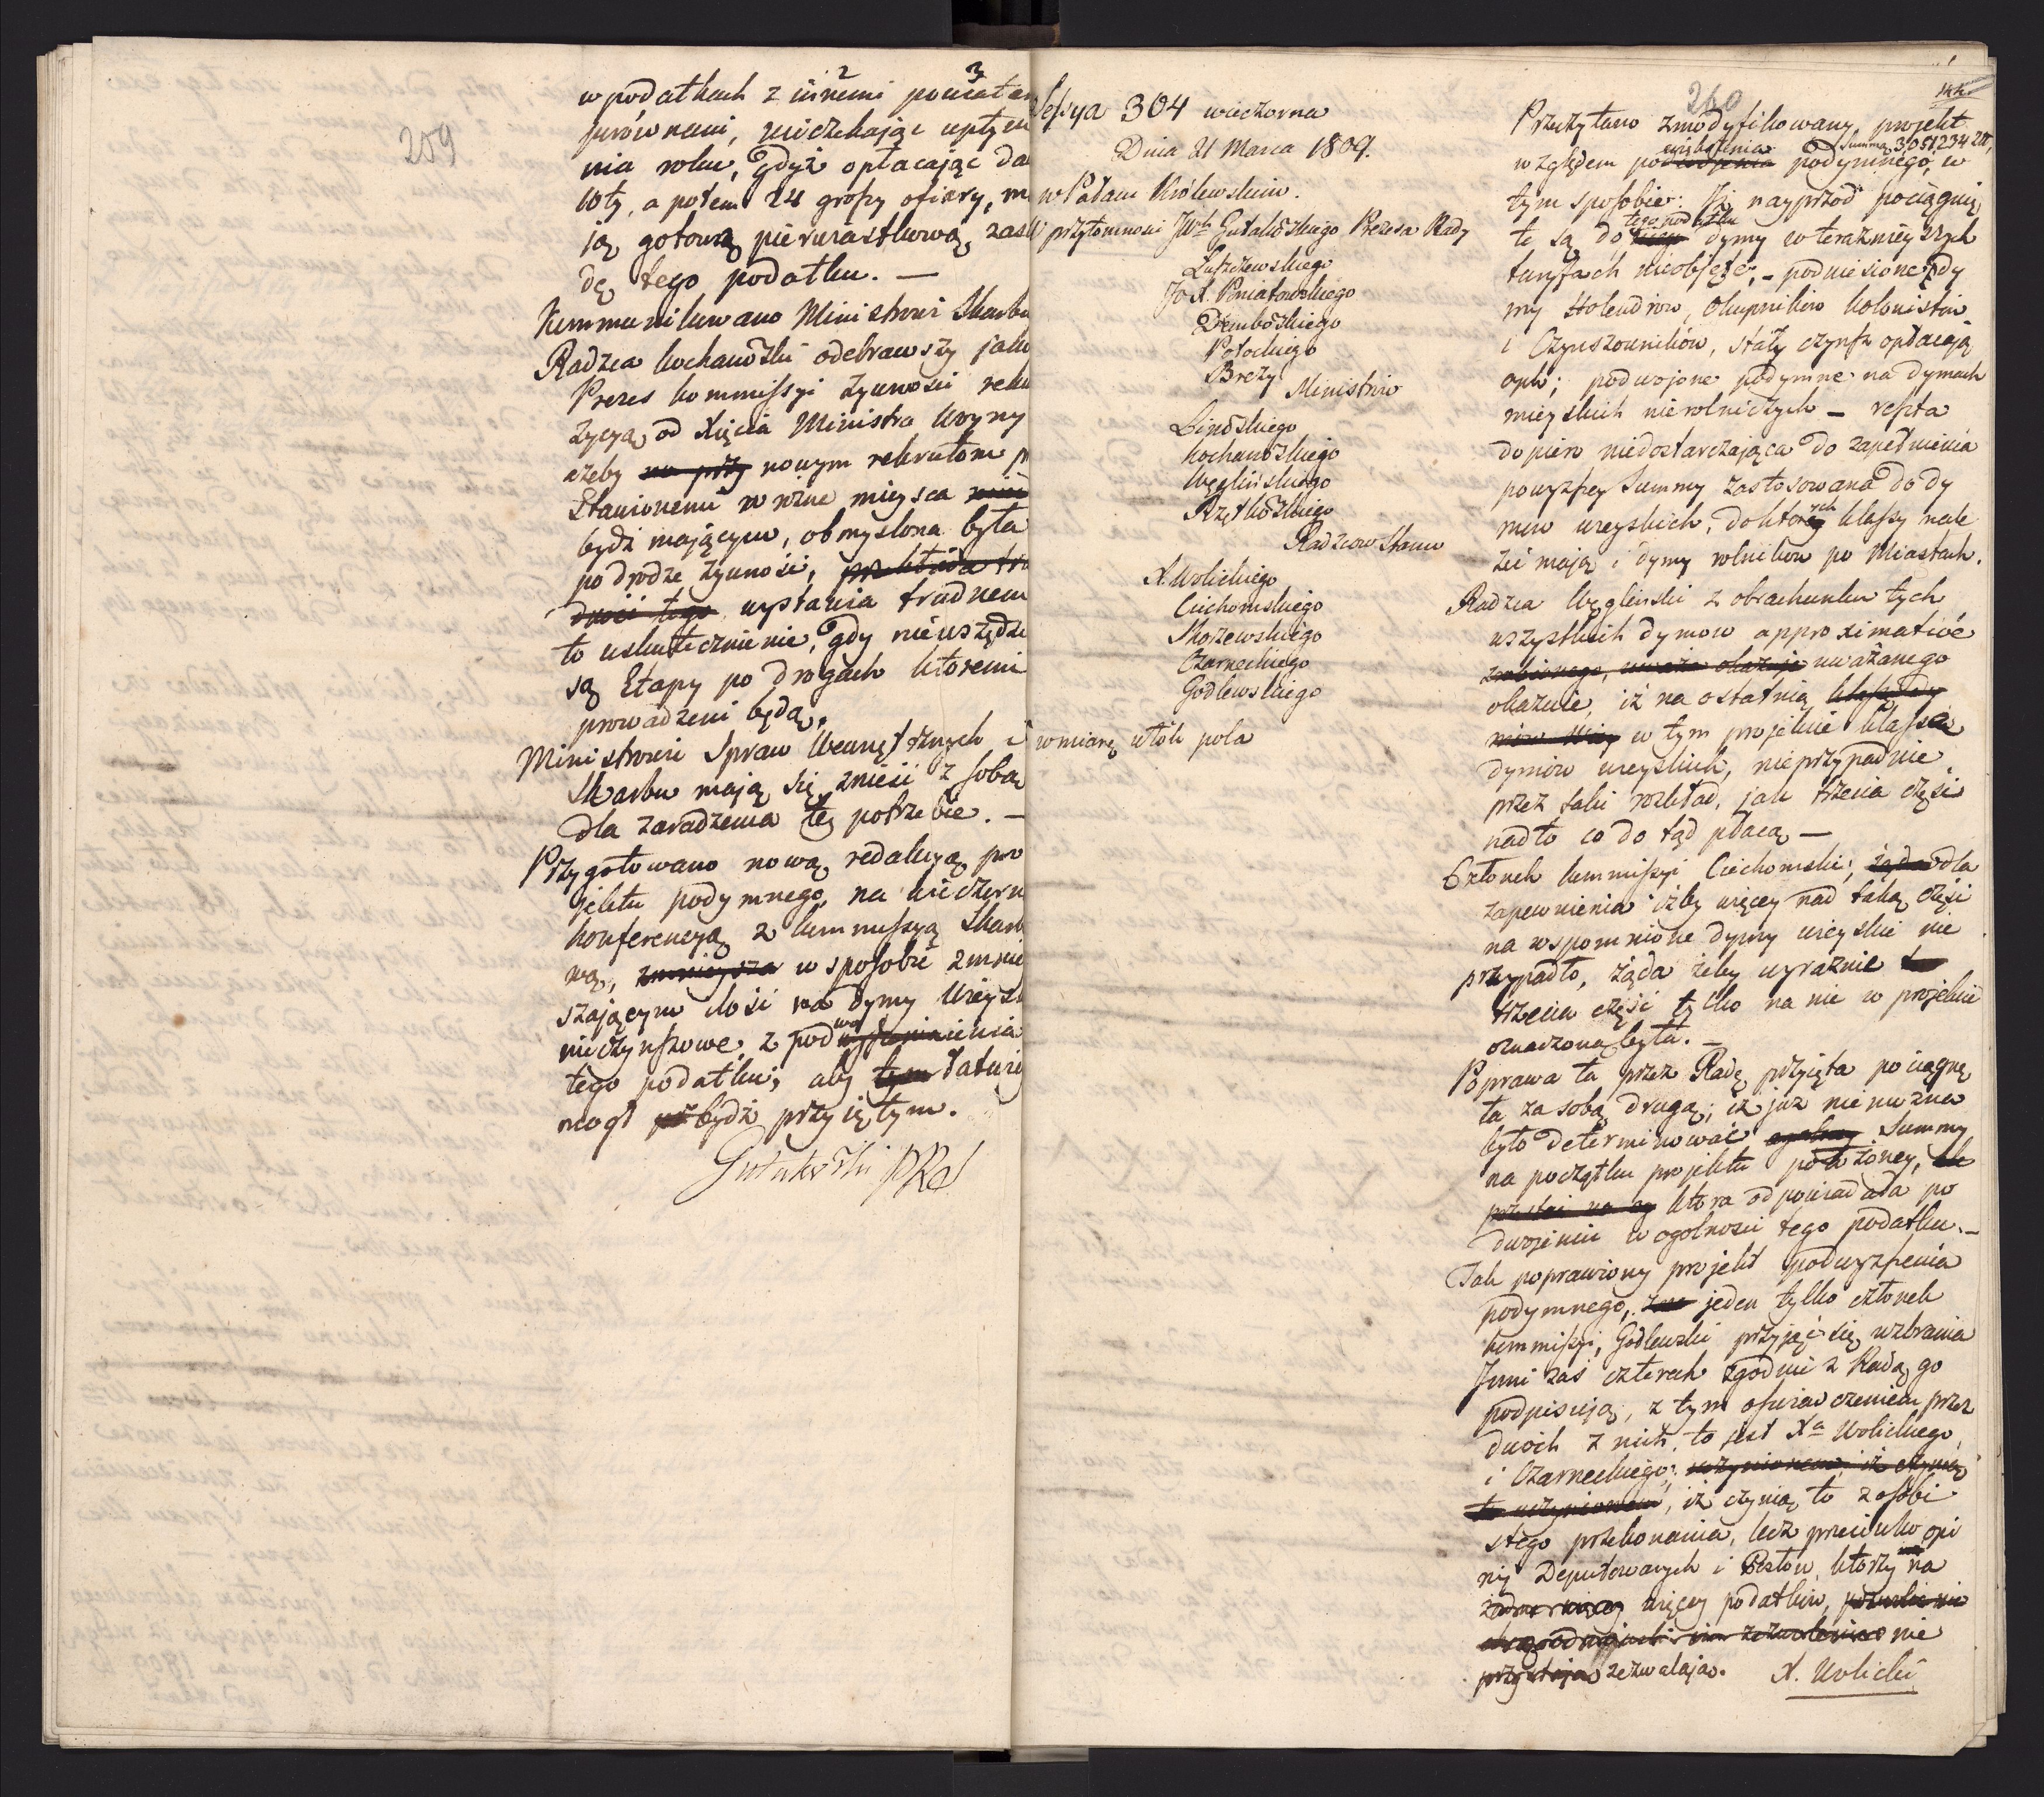 209
w podatkach z innemi powiatam
porównani, nieczekając upłynie
nia roku, gdyż opłacając da
wty, a potem 24 groszy ofiary, m
ją gotową pierwiastkową zasa
dę tego podatku. —
Kommunikowano Ministrowi Skarbu
Radzca Kochanowski odebrawszy jako
Prezes Kommissyi żywności rekw
zycyą od Xięcia Ministra Woyny
ażeby na przy nowym rekrutom p
Stawionemu w różne mieysca
bydź mającym, obmyslona była
po drodze żywność, przekłada tru
dność tego wystawia trudnem
to uskutecznienie, gdy nieuszędzi
są Etapy po drogach ktoremi
prowadzeni będą.
Ministrowi Spraw Wewnętrznych i
Skarbu mają się znieść z sobą
dla zaradzenia tej potrzebie. —
Przygotowano nową redakcyą pro
jektu podymnego, na wieczorn
konferencyą z kommissyą Skarb
wą, zmnieysza w sposobie zmniey
szającym ilość na dymy Wieysk
nieczynszowe, z podwoienia
tego podatku, aby tym łatwiey
mogł bydź przyiętym.
Gutakowski PRS
Sessya 304 wieczorna
Dnia 21 Marca 1809.
w Pałacu Królewskim.
w przytomności JWch Gutakowskiego Prezesa Rady
Łuszczewskiego
JO X. Poniatowskiego
Dembowskiego
Potockiego
Brezy
Ministrów
Linowskiego
Kochanowskiego
Węglińskiego
Rzętkowskiego
Radzców Stanu
X. Wolickiego
Ciechomskiego
Skorzewskiego
Czarneckiego
Godlewskiego
w miarę włók pola
260
144
Przeczytano zmodyfikowany projekt
Summa 3,051,234 zł,
względem podwojenia podymnego, w
tym sposobie: Iż nayprzod pociągnię
tego podatku
te są do dymy w teraznieyszych
taryfach nieobjęte; — podniesione dy
my Holendrow, Okupników kolonistów
i Czynszowników, stały czynsz opłacają
cych; podwojone podymne na dymach
mieyskich nierolniczych — reszta
dopiero niedostarczająca do zapełnienia
powyższey Summy zastosowana do dy
mów wieyskich, do ktorych klassy nale
żeć mają i dymy rolników po Miastach.
Radzca Węgliński z obrachunku tych
wszystkich dymow approximative
zrobionego, uważa okazuje uważanego
okazuie, iż na ostatnią klassę dy
mów wiey w tym projekcie klassę
dymów wieyskich, nieprzypadnie
przez taki rozkład, jak trzecia część
nadto co do tąd płacą —
Członek kommissyi Ciechomski; żąda dla
zapewnienia iżby więcey nad taką część
na wspomnione dymy wieyskie nie
przypadło, żąda żeby wyraznie
trzecia część tylko na nie w projekcie
oznaczona była. —
Poprawa ta przez Radę przyięta pociągnę
ła za sobą drugą; iż już nie można
było determinować Summy
na początku projektu położoney,
ktora odpowiadała po
dwojeniu w ogolności tego podatku. —
Tak poprawiony projekt podwyższenia
podymnego, jeden tylko członek
kommissyi, Godlewski przyjąć się wzbrania
Inni zaś czterech zgodnie z Radą go
podpisują, z tym oświadczeniem przez
dwóch z nich, to jest Xa Wolickiego
i Czarneckiego; uczynionem, iż czynią
to uczynionem, iż czynią to z osobi
stego przekonania, lecz przeciwko opi
nii Deputowanych i Posłow, ktorzy na
więcey podatków,
nie
przystają zezwalają.
X. Wolicki